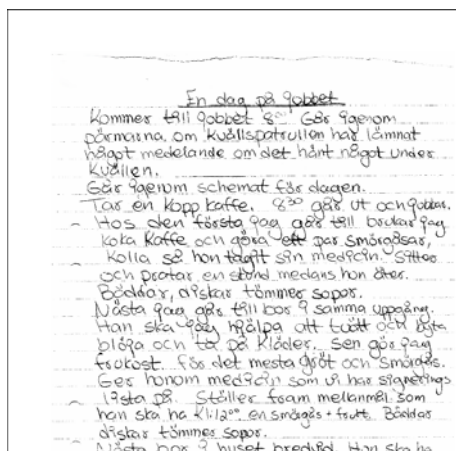 En dag på jobbet
Kommer till jobbet 8⁰⁰ Går igenom
pärmarna om kvällspatrullen har lämnat
något medelande om det hänt något under
kvällen.
Går igenom schemat för dagen.
Tar en kopp kaffe. 8³⁰ går ut och jobbar.
Hos den första jag går till brukar jag
koka kaffe och göra ett par smörgåsar,
kolla så hon tagit sin medicin. Sitter
och pratar en stund medans hon äter.
Bäddar, diskar tömmer sopor.
Nästa jag går till bor i samma uppgång.
Han ska jag hjälpa att tvätt och byta
blöja och ta på kläder. Sen gör jag
frukost. för det mesta gröt och smörgås.
Ger honom medicin som vi har signerings
lista på. Ställer fram mellanmål som
han ska ha kl:12⁰⁰ en smörgås + frukt. Bäddar
diskar tömmer sopor.
Nästa bor i huset bredvid. Han ska ha